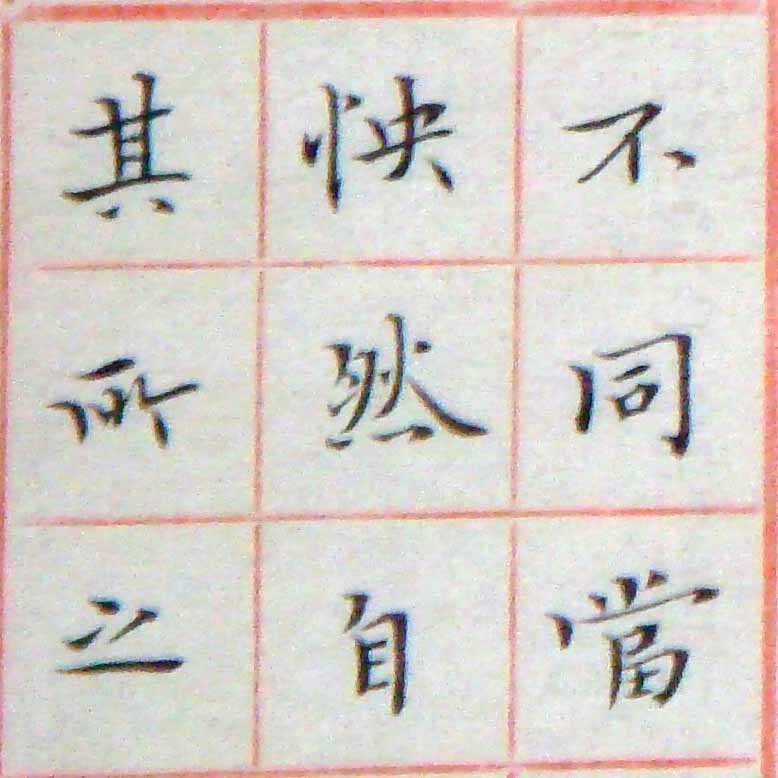 不同當
怏然自
其所之